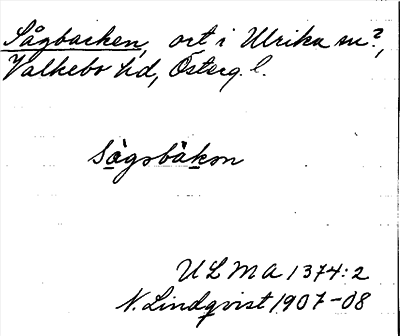 Sågbacken, ort i Ulrika sn?,
Valkebo hd, Österg. l.
sågsbàkən
ULMA 1374:2
N. Lindqvist 1907-08